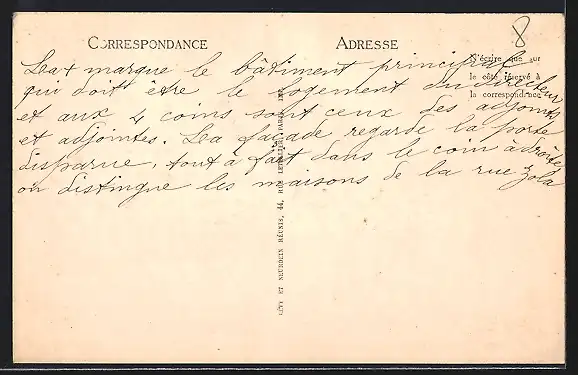 8
CORRESPONDANCE
ADRESSE
N'écrire que sur
le côté réservé à
la correspondance
La + marque le bâtiment principal
qui doit être le logement du directeur
et aux 4 coins sont ceux des adjoints
et adjointes. La façade regarde la porte
disparue, tout à fait dans le coin à droite,
on distingue les maisons de la rue Zola
LÉVY ET NEURDEIN RÉUNIS, 44, RUE LETELLIER, PARIS